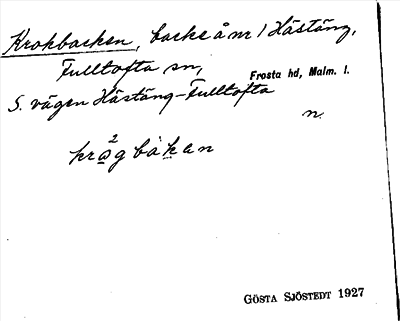 Krokbacken, backe å nr 1 Hästäng,
Fulltofta sn,
Frosta hd, Malm. l.
S. vägen Hästäng–Fulltofta
n.
krå²gbàkan
GÖSTA SJÖSTEDT 1927